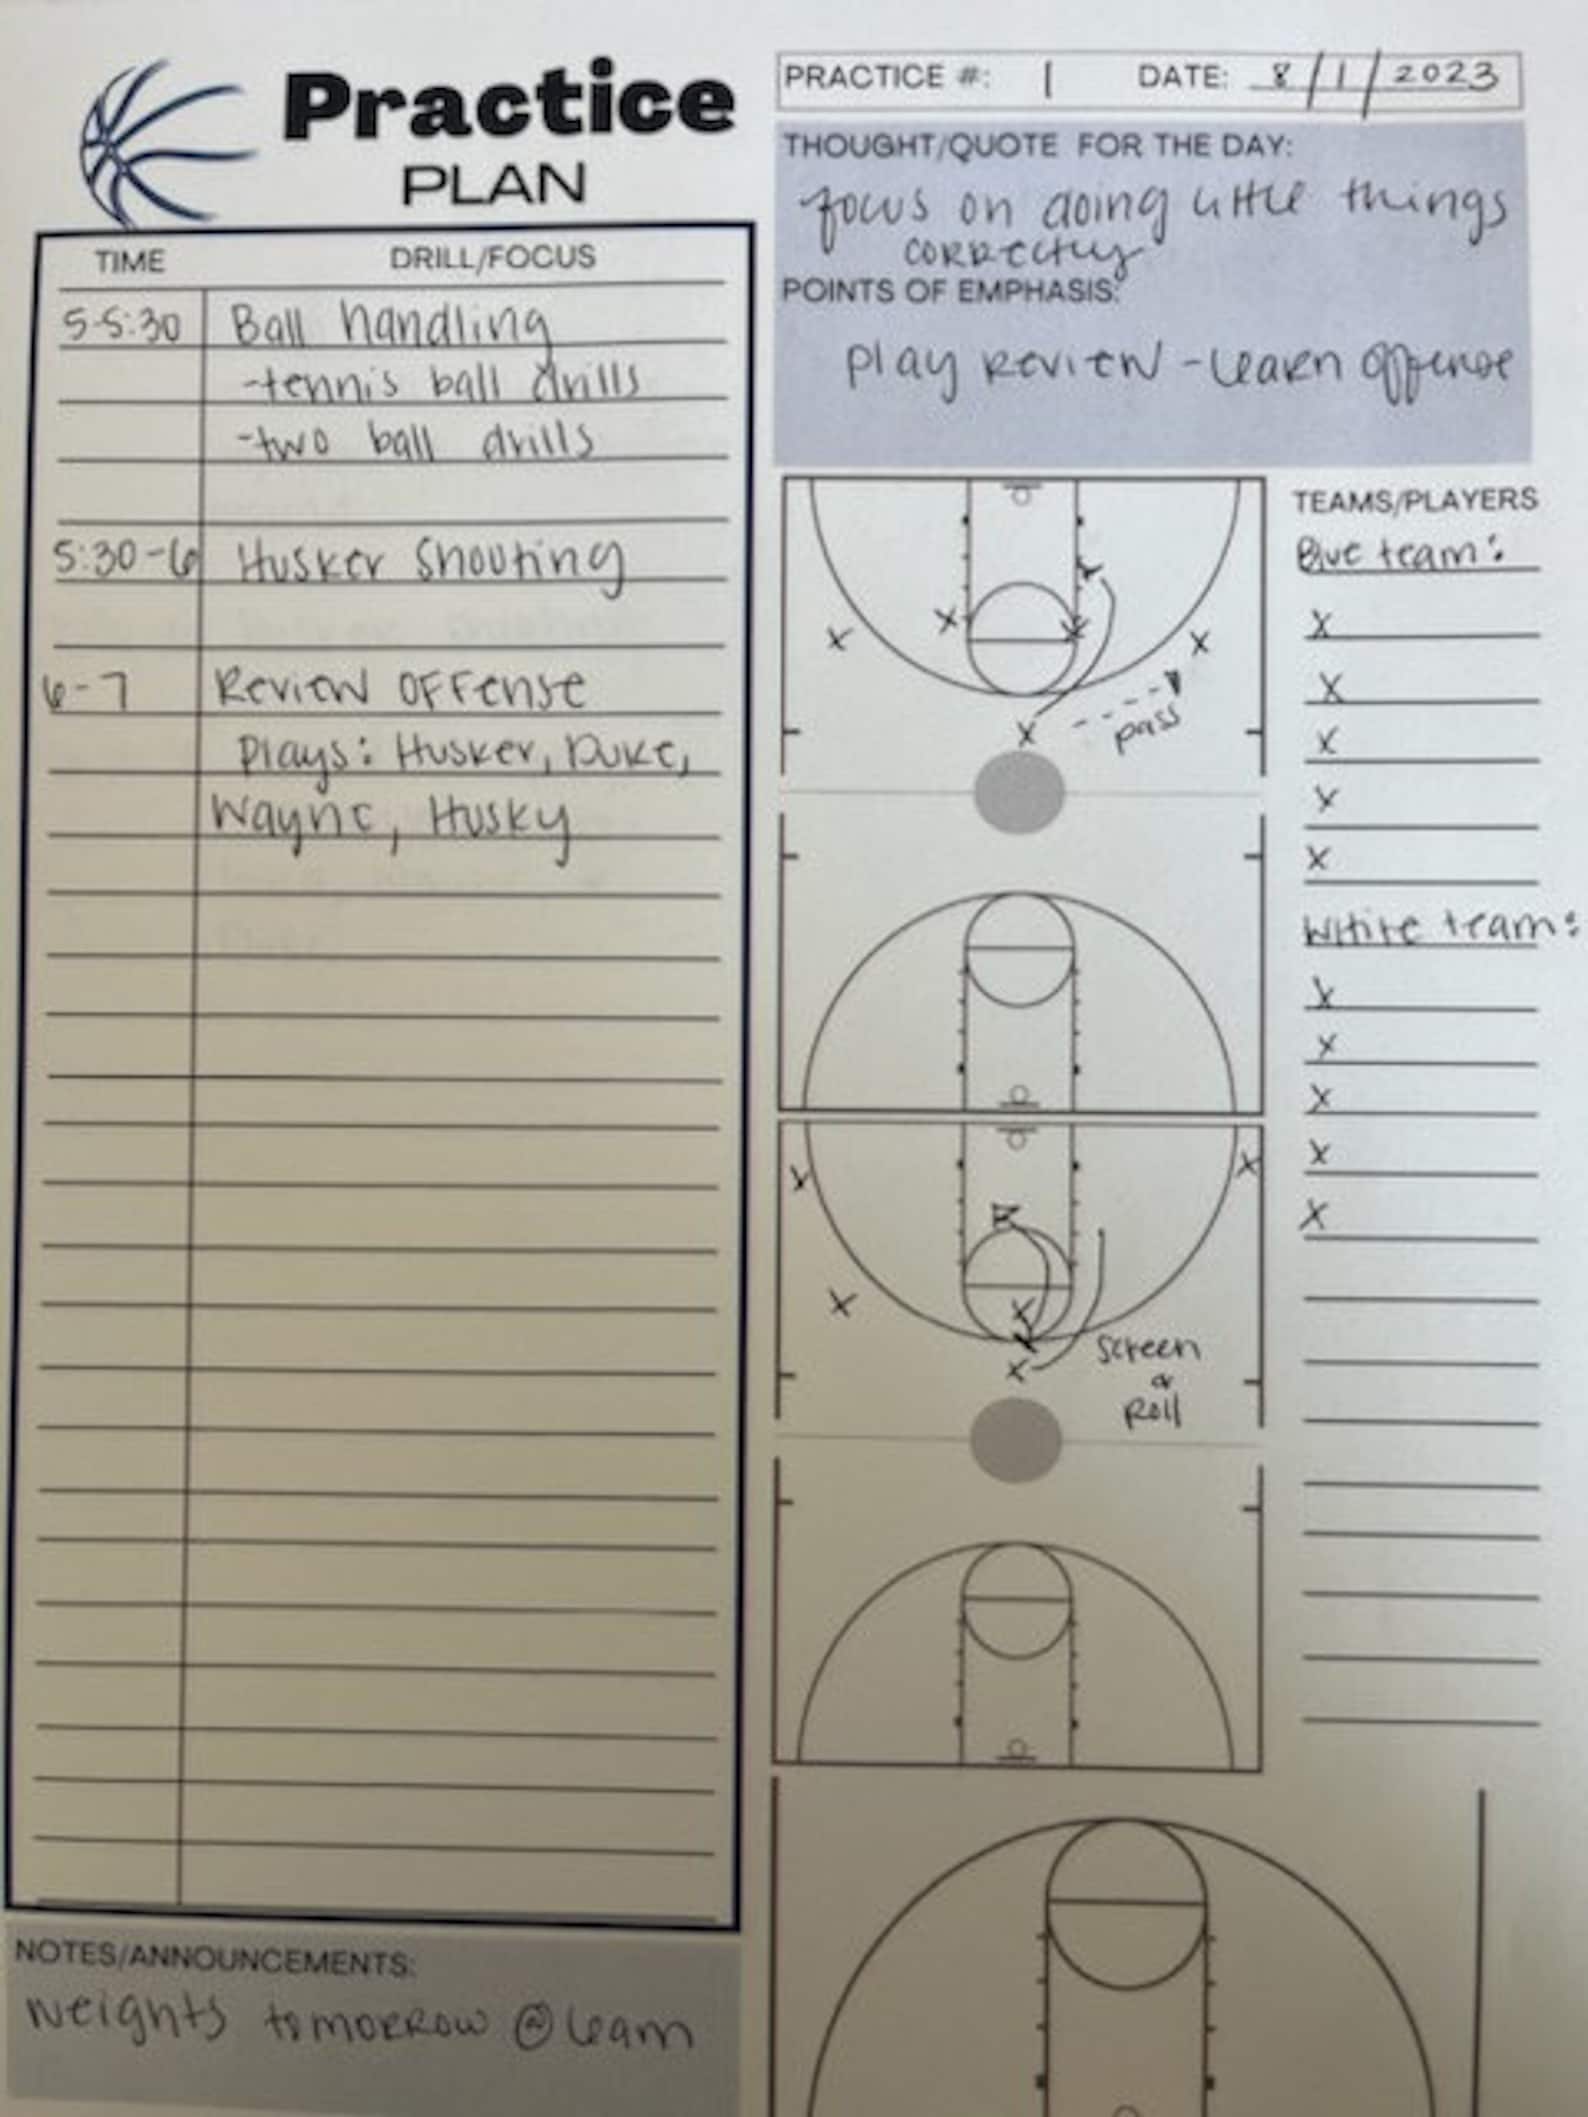 Practice
PLAN
PRACTICE #: 1 DATE: 8/1/2023
THOUGHT/QUOTE FOR THE DAY:
focus on doing little things
correctly
POINTS OF EMPHASIS:
play review - learn offense
TIME DRILL/FOCUS
5-5:30 Ball handling
-tennis ball drills
-two ball drills
5:30-6 Husker Shooting
6-7 Review offense
plays: Husker, Duke,
Wayne, Husky
pass
screen
&
roll
TEAMS/PLAYERS
Blue team:
X
X
X
X
X
White team:
X
X
X
X
X
NOTES/ANNOUNCEMENTS:
weights tomorrow @ 6am